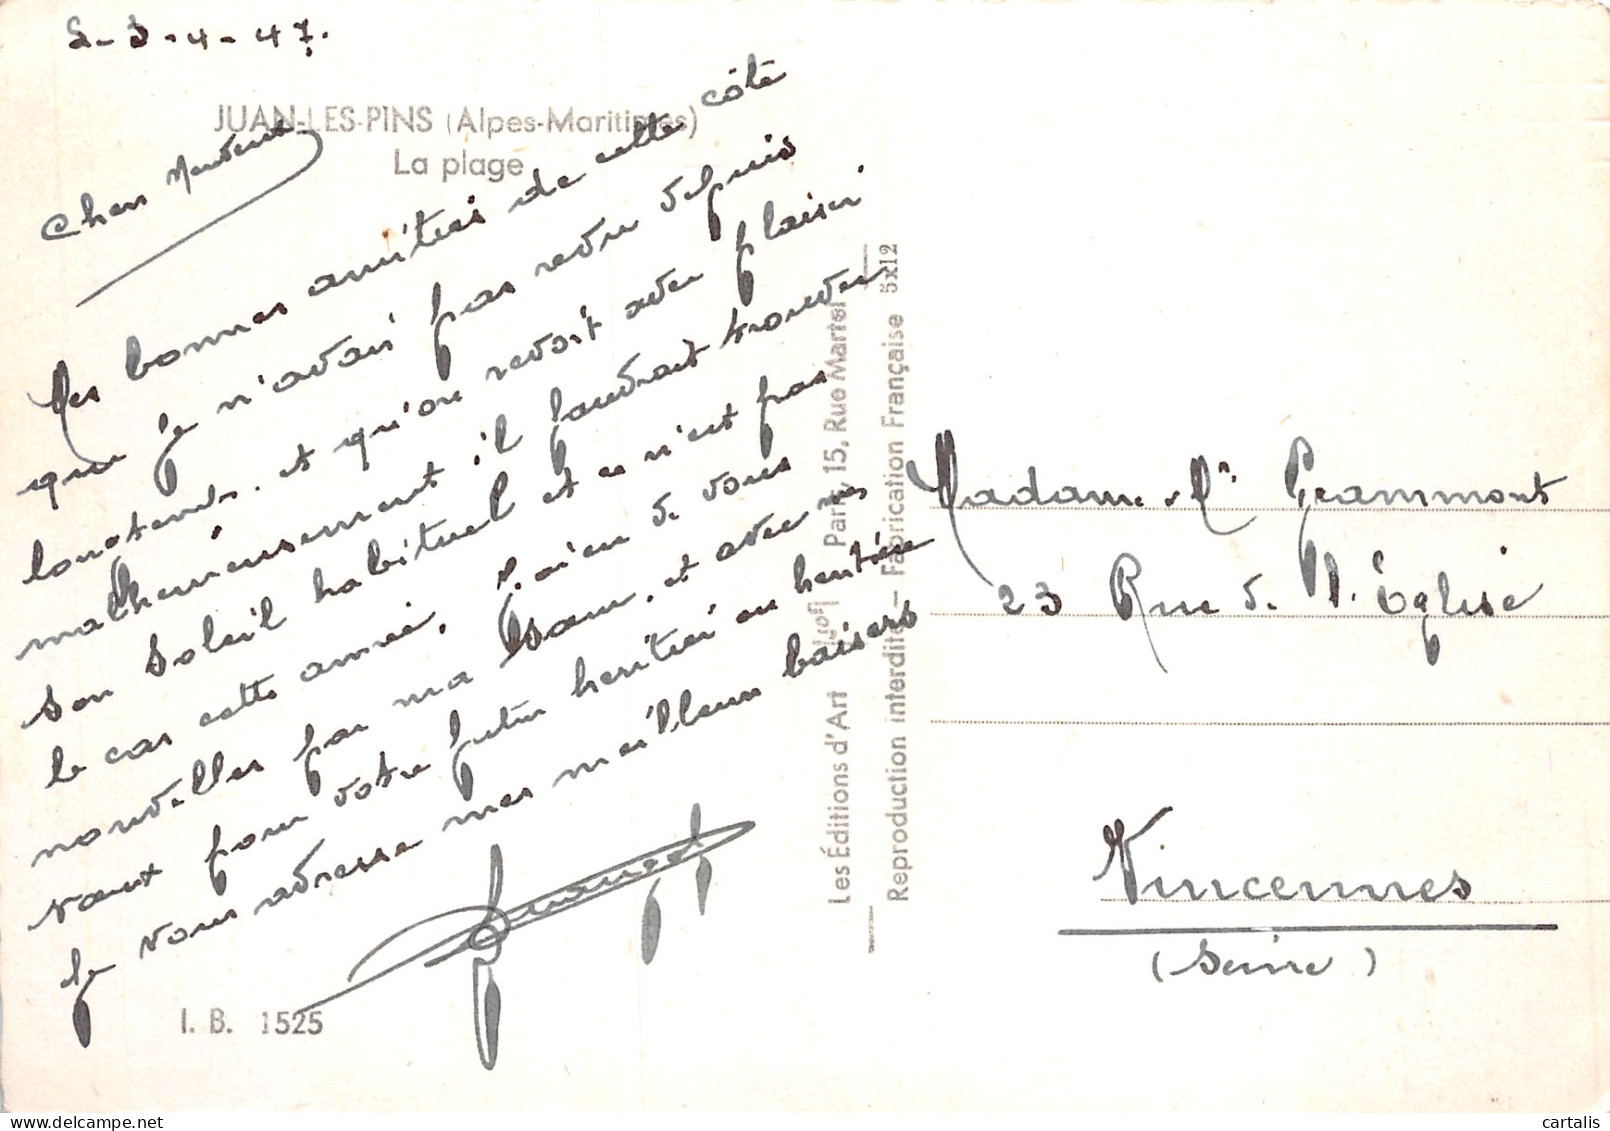 2-3-4-47.
JUAN-LES-PINS (Alpes-Maritimes)
La plage
Mes bonnes amitiés de cette côté
que je n'avais pas revu depuis
longtemps. et qu'on revoit avec plaisir
malheureusement il faudrait trouver
son soleil habituel et ce n'est pas
le cas cette année. J'ai eu de vous
nouvelles par ma et avec mes
vœux pour votre futur héritier ou héritière
je vous adresse mes meilleurs baisers
I. B. 1525
Les Éditions d'Art Yvon Paris, 15, Rue Martel
Reproduction interdite - Fabrication Française 5x12
Madame Mr Grammont
23 Rue de l'Église
Vincennes
(Seine)
cartalis